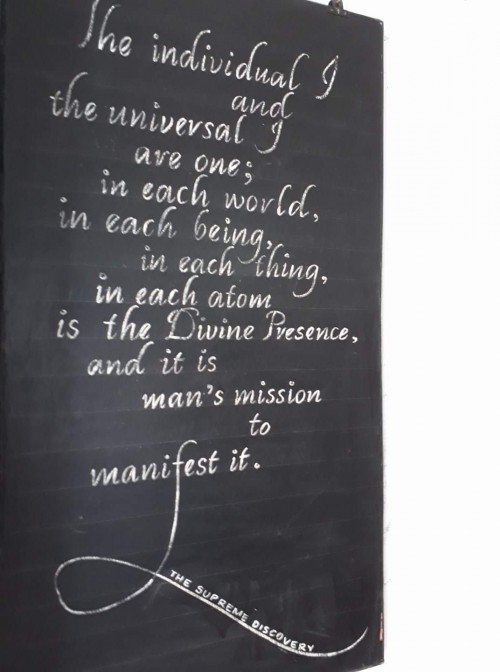 The individual I
and
the universal I
are one;
in each world,
in each being,
in each thing,
in each atom
is the Divine Presence,
and it is
man's mission
to
manifest it.
THE SUPREME DISCOVERY